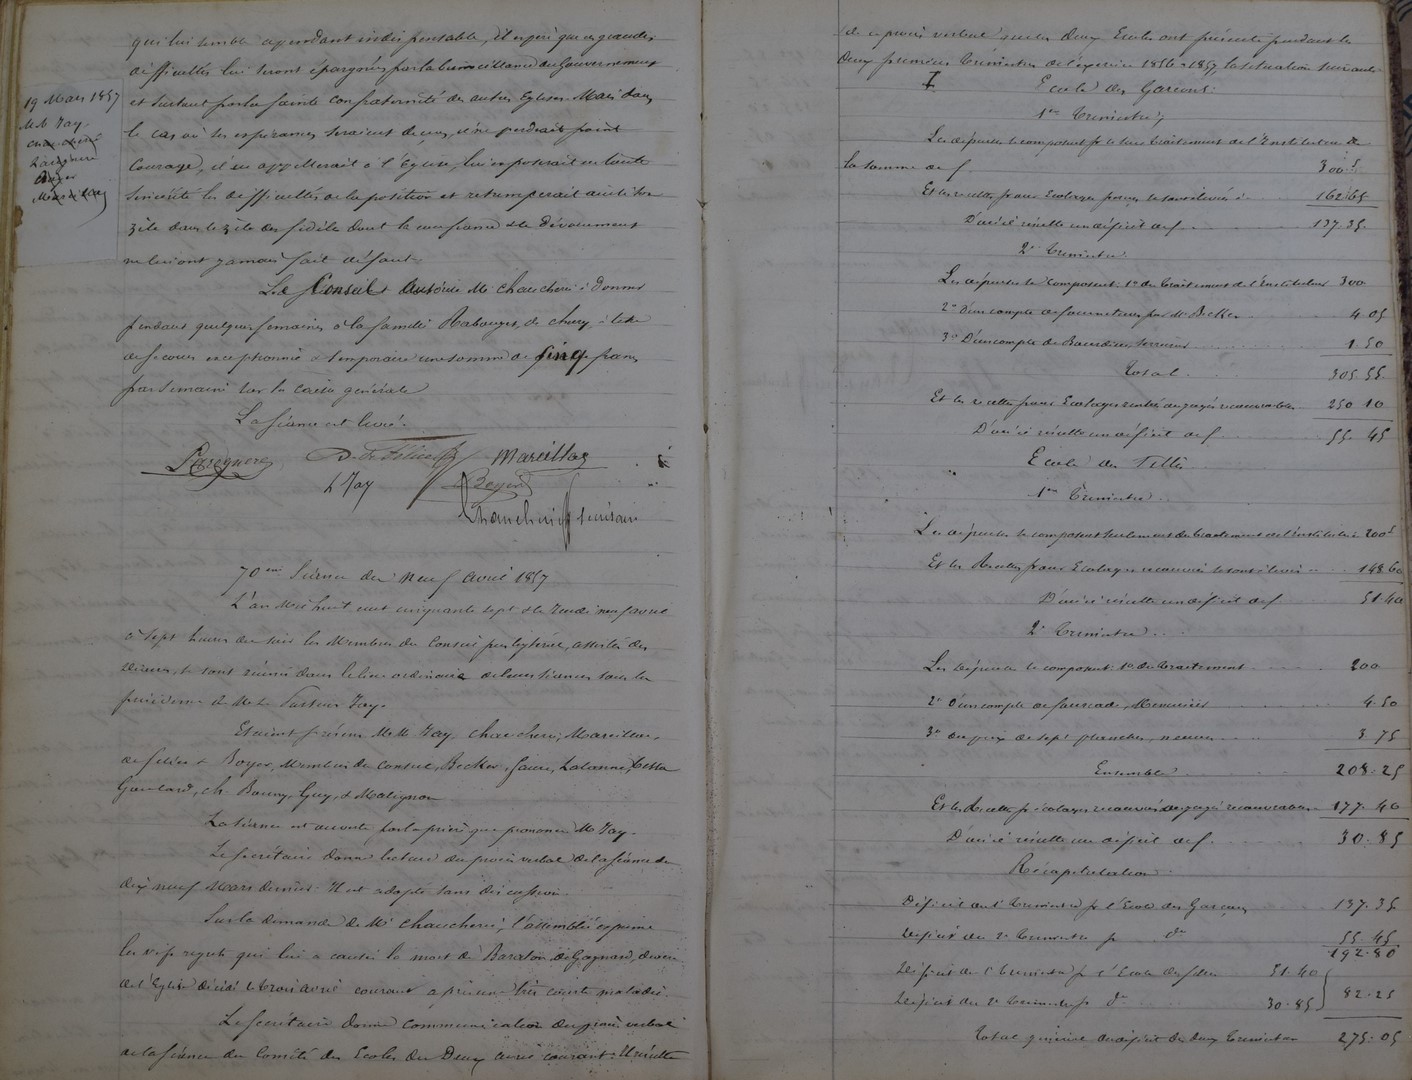 19 Mars 1857
M. Jay.
Chaucherie
Laregnère
Boyer
Mareillac
qui lui semble cependant indispensable, il espère que ces grandes
difficultés lui seront épargnées par la bienveillance du Gouvernement
et surtout par la sainte confraternité des autres Eglises. Mais dans
le cas où ses espérances seraient déçues, il ne perdrait point
Courage, il en appellerait à l'Eglise, lui exposerait en toute
sincérité les difficultés de la position et retremperait ainsi son
zèle dans le zèle des fidèles dont la confiance et le dévouement
ne lui ont jamais fait défaut.
Le Conseil autorise Mr Chaucherie à donner
pendant quelques semaines à la famille Rabouges, de à titre
de secours exceptionnel et temporaire une somme de cinq francs
par semaine sur la caisse générale
La séance est levée.
Laregnère D. de Félice Mareillac
L Jay Boyer
Chaucherie secrétaire
70eme Séance du neuf avril 1857
L'an Mil huit cent cinquante sept et le Jeudi neuf avril
à sept heures du soir les Membres du Conseil presbytéral, assistés des
diacres, se sont réunis dans le lieu ordinaire de leurs séances sous la
présidence de M. le Pasteur Jay.
Etaient présents MM Jay, Chaucherie, Mareillac,
de Félice & Boyer, Membres du Conseil, Becker, Faure, Lalanne,
Goulard, ch. Bonny, Guy, & Matignon
La séance est ouverte par la prière que prononce Mr Jay.
Le secrétaire donne lecture du procès verbal de la séance du
dix neuf Mars dernier. Il est adopté sans discussion.
Sur la demande de Mr Chaucherie, l'assemblée exprime
les vifs regrets que lui a causés la mort de Baraton diacre
de l'Eglise décédé le trois avril courant après une très courte maladie.
Le secrétaire donne communication du procès verbal
de la séance du Comité des Ecoles du Deux avril courant. Il résulte
de ce procès verbal que les deux Ecoles ont présenté pendant les
deux premiers trimestres de l'exercice 1856-1857, la situation suivante
I Ecole des Garçons.
1er Trimestre;
Les dépenses se composent pr le seul traitement de l'Instituteur de
la somme de f 300.f
Et les recettes pour Ecolages perçus se sont élevées à 162.65
D'où il résulte un déficit de f 137.35
2e Trimestre.
Les dépenses se composent: 1° du traitement de l'Instituteur 300
2° D'un compte de fournitures par Mr Becker 4 05
3° D'un compte de Bourdieu, serrurier 1 50
Total 305.55
Et les recettes pour Ecolages rentrés ou jugés recouvrables 250 10
D'où il résulte un déficit de f 55.45
Ecole des Filles
1er Trimestre.
Les dépenses se composent seulement du traitement de l'institutrice 200f
Et les Recettes pour Ecolages recouvrés se sont élevées 148.60
D'où il résulte un déficit de f 51.40
2e Trimestre
Les dépenses se composent: 1° du traitement 200
2° D'un compte de Menuisier 4.50
3° du prix de sept planches, neuves 3.75
Ensemble 208.25
Et les Recettes pr écolages recouvrés ou jugés recouvrables 177.40
D'où il résulte un déficit de f 30.85
Récapitulation
Déficit au 1er Trimestre pr l'Ecole des Garçons 137.35
Déficit du 2e Trimestre pr do 55.45
192.80
Déficit du 1er Trimestre pr l'Ecole des filles 51.40
Déficit du 2e Trimestre pr do 30.85 82.25
Total général du déficit des deux Trimestres 275.05